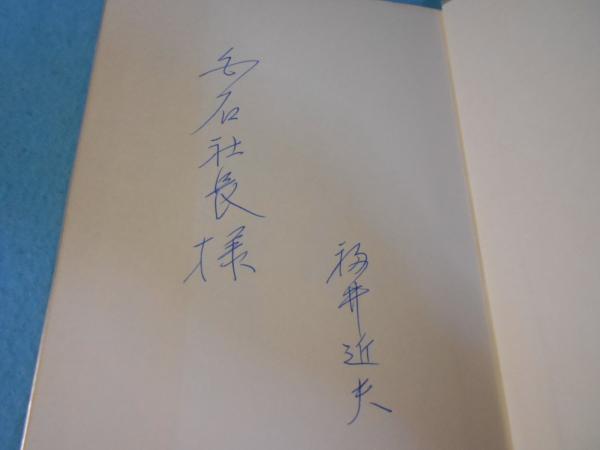 石社長様
福井近夫